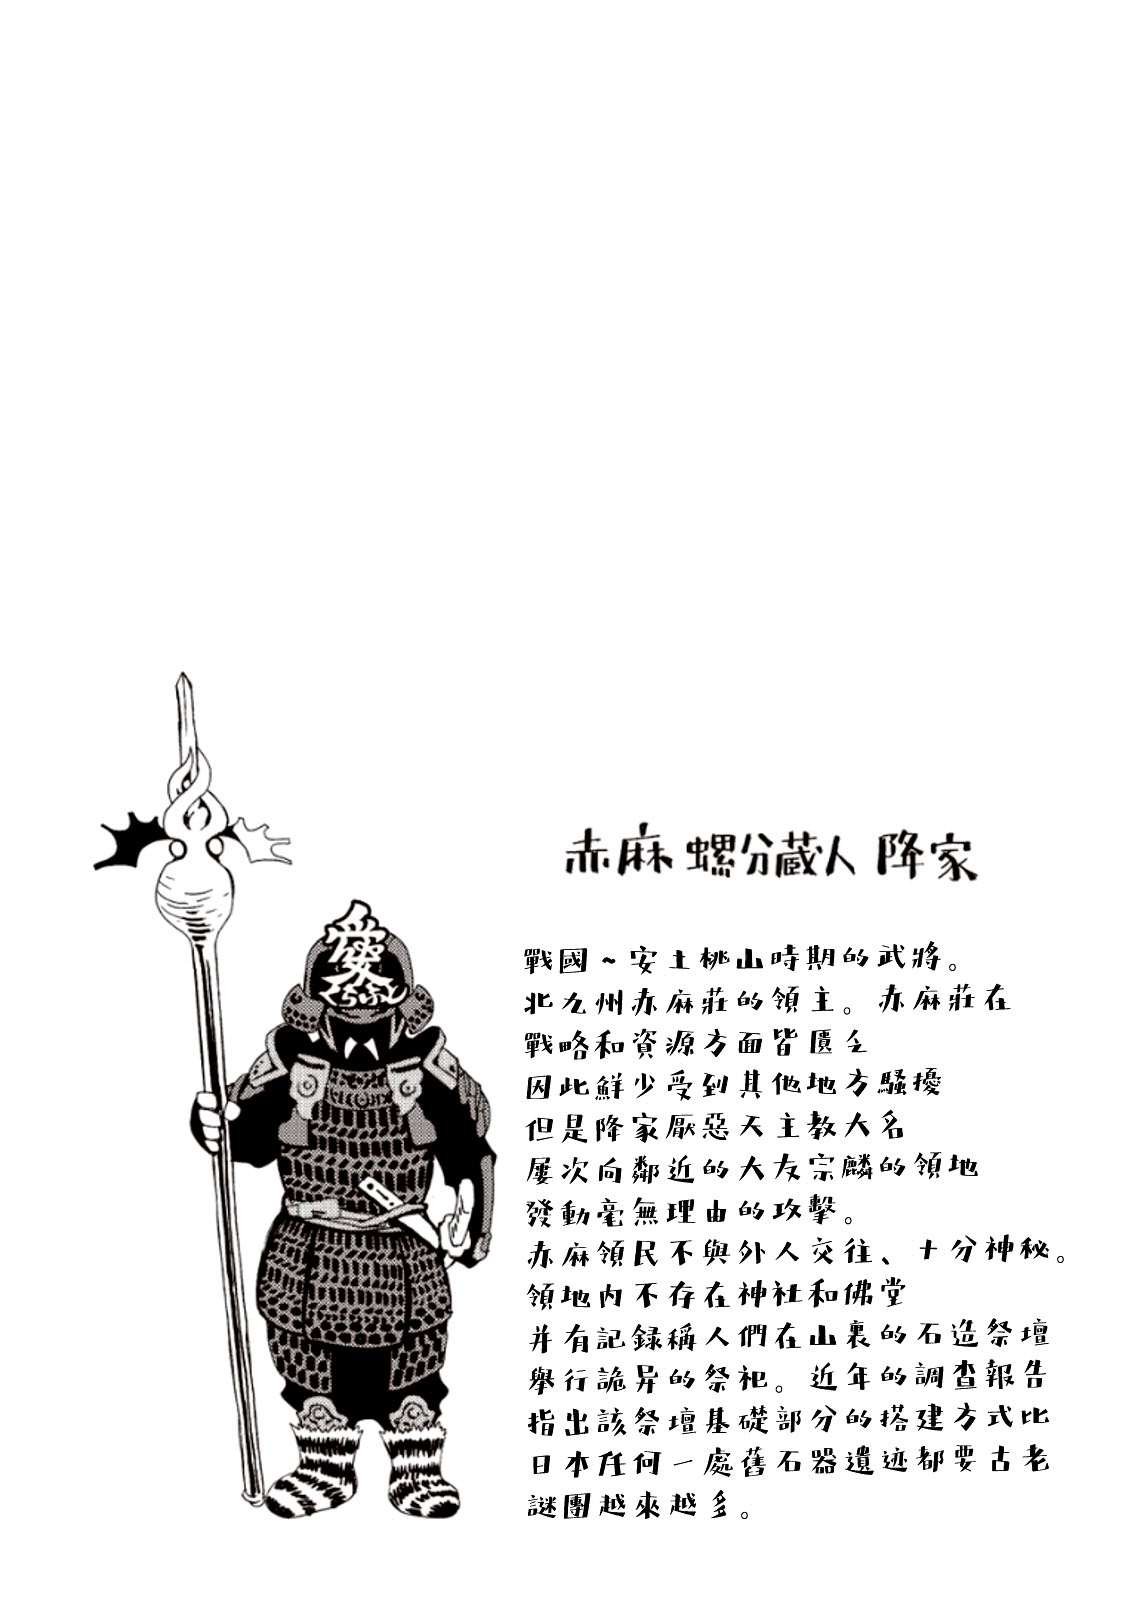 愛
くらふと
赤麻 螺分蔵人 降家
戰國~安土桃山時期的武將。
北九州赤麻莊的領主。赤麻莊在
戰略和資源方面皆匱乏
因此鮮少受到其他地方騷擾
但是降家厭惡天主教大名
屢次向鄰近的大友宗麟的領地
發動毫無理由的攻擊。
赤麻領民不與外人交往、十分神秘。
領地內不存在神社和佛堂
并有記録稱人們在山裏的石造祭壇
舉行詭异的祭祀。近年的調查報告
指出該祭壇基礎部分的搭建方式比
日本任何一處舊石器遺迹都要古老
謎團越來越多。